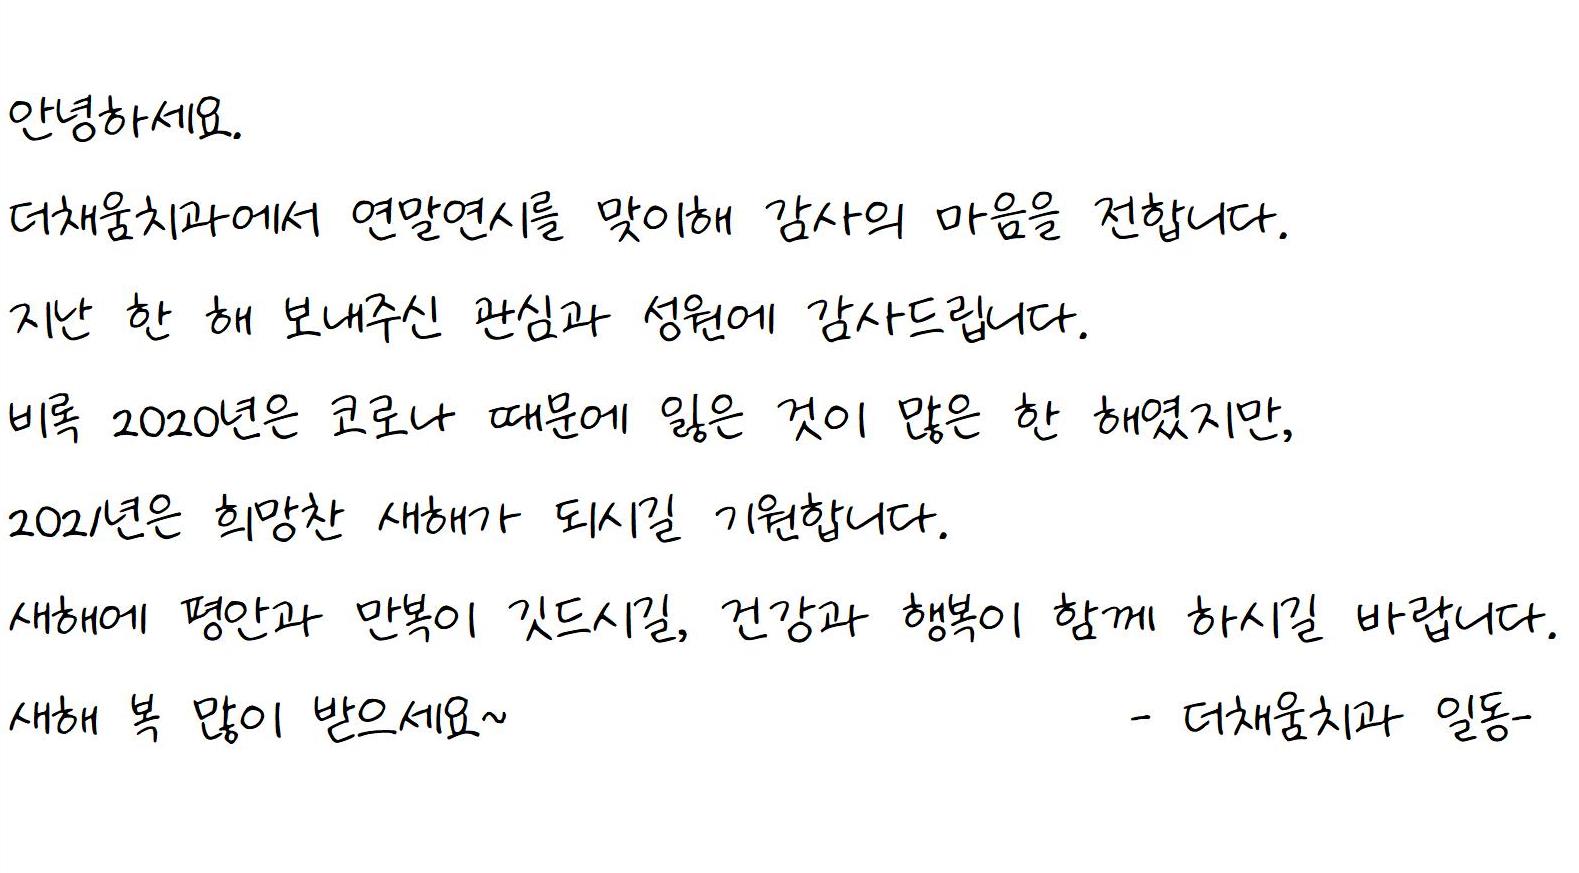 안녕하세요.
더채움치과에서 연말연시를 맞이해 감사의 마음을 전합니다.
지난 한 해 보내주신 관심과 성원에 감사드립니다.
비록 2020년은 코로나 때문에 잃은 것이 많은 한 해였지만,
2021년은 희망찬 새해가 되시길 기원합니다.
새해에 평안과 만복이 깃드시길, 건강과 행복이 함께 하시길 바랍니다.
새해 복 많이 받으세요~ - 더채움치과 일동-